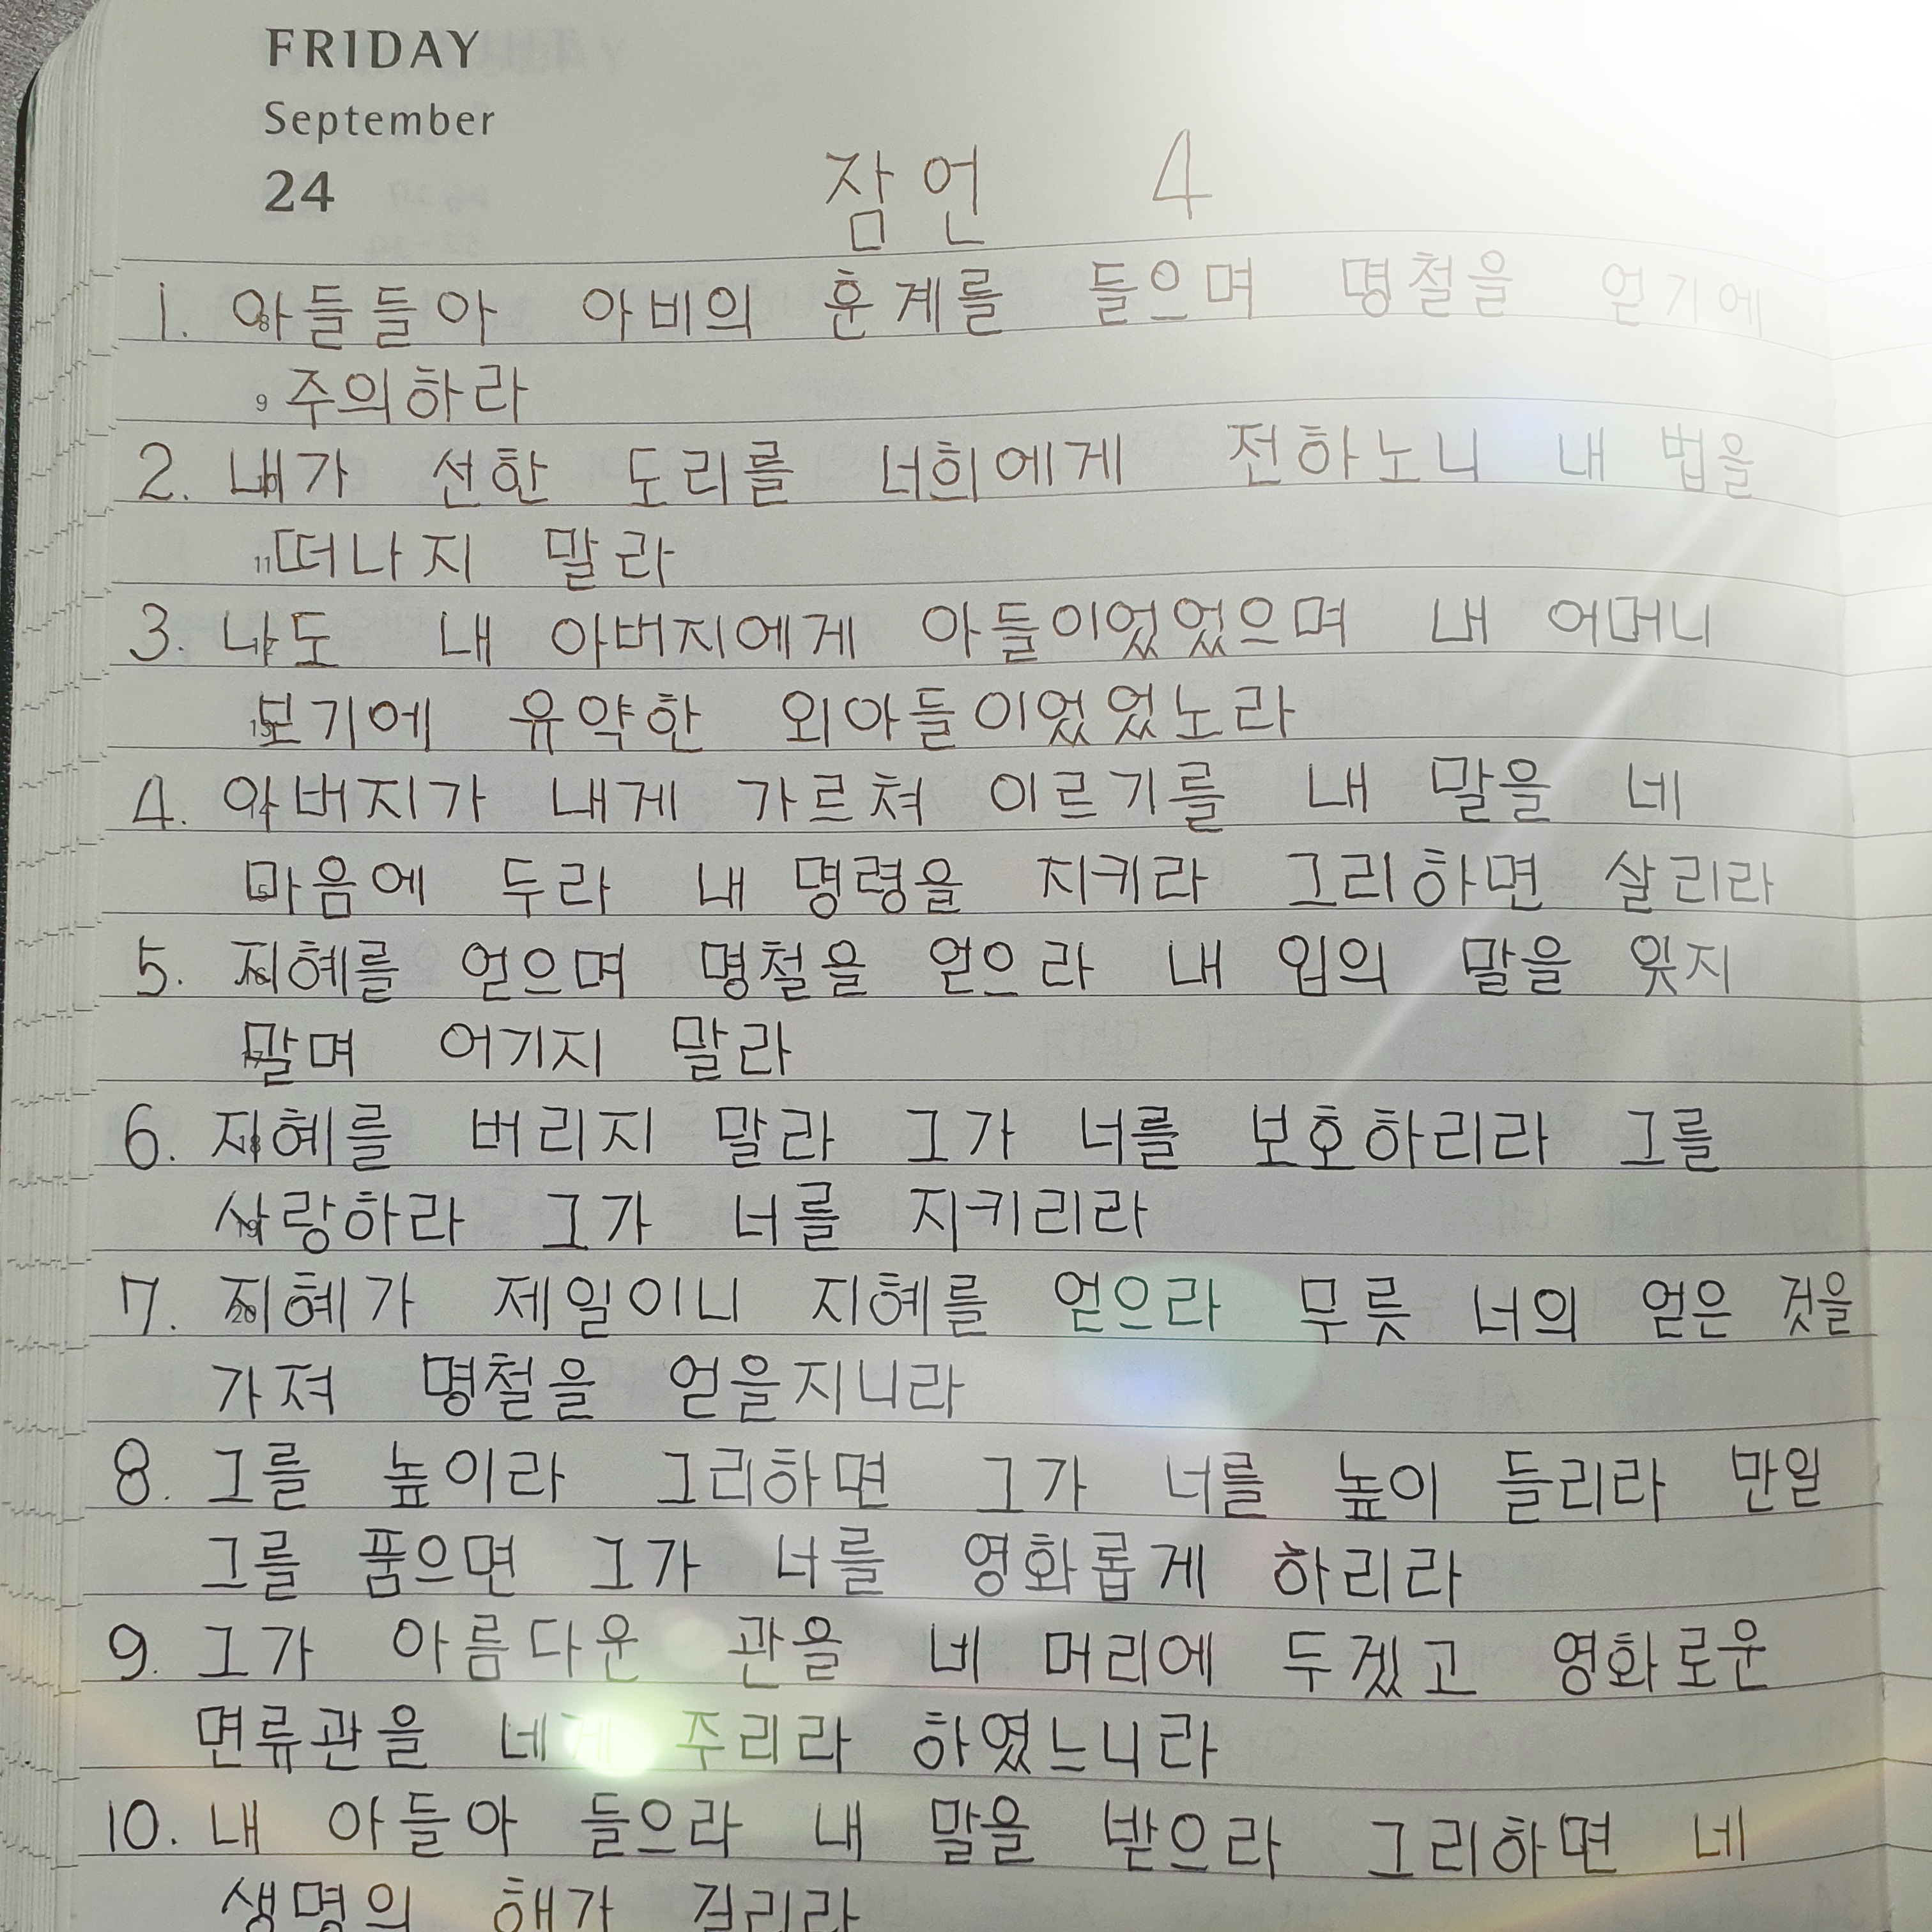 FRIDAY
September
24
잠언 4
1. 아들들아 아비의 훈계를 들으며 명철을 얻기에
9 주의하라
2. 내가 선한 도리를 너희에게 전하노니 내 법을
11 떠나지 말라
3. 나도 내 아버지에게 아들이었었으며 내 어머니
보기에 유약한 외아들이었었노라
4. 아버지가 내게 가르쳐 이르기를 내 말을 네
마음에 두라 내 명령을 지키라 그리하면 살리라
5. 지혜를 얻으며 명철을 얻으라 내 입의 말을 잊지
말며 어기지 말라
6. 지혜를 버리지 말라 그가 너를 보호하리라 그를
사랑하라 그가 너를 지키리라
7. 지혜가 제일이니 지혜를 얻으라 무릇 너의 얻은 것을
가져 명철을 얻을지니라
8. 그를 높이라 그리하면 그가 너를 높이 들리라 만일
그를 품으면 그가 너를 영화롭게 하리라
9. 그가 아름다운 관을 네 머리에 두겠고 영화로운
면류관을 네게 주리라 하였느니라
10. 내 아들아 들으라 내 말을 받으라 그리하면 네
생명의 해가 길리라